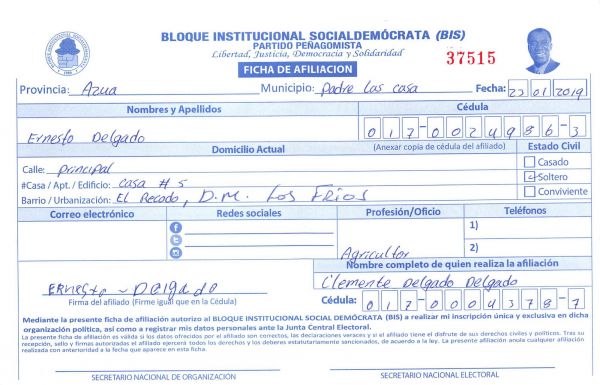 BLOQUE INSTITUCIONAL SOCIALDEMÓCRATA (BIS)
PARTIDO PEÑAGOMISTA
Libertad, Justicia, Democracia y Solidaridad
37515
FICHA DE AFILIACION
Provincia: Azua Municipio: Padre Las casa Fecha: 23 01 2019
Nombres y Apellidos Cédula
Ernesto Delgado 017-0024986-3
Domicilio Actual (Anexar copia de cédula del afiliado) Estado Civil
Calle: Principal Casado
#Casa / Apt. / Edificio: casa # 5 Soltero
Barrio / Urbanización: El Recodo, D.M. Los Frios Conviviente
Correo electrónico Redes sociales Profesión/Oficio Teléfonos
1)
Agricultor 2)
Nombre completo de quien realiza la afiliación
Ernesto Delgado Clemente Delgado Delgado
Firma del afiliado (Firme igual que en la Cédula) Cédula: 017-0004378-7
Mediante la presente ficha de afiliación autorizo al BLOQUE INSTITUCIONAL SOCIAL DEMÓCRATA (BIS) a realizar mi inscripción única y exclusiva en dicha
organización política, así como a registrar mis datos personales ante la Junta Central Electoral.
La presente ficha de afiliación es válida si los datos ofrecidos por el afiliado son correctos, las declaraciones veraces y si el afiliado tiene el disfrute de sus derechos civiles y políticos. Tras su
recepción, sello y firmas autorizadas el afiliado ejercerá todos los derechos y los deberes estatutariamente sancionados, de acuerdo a la ley. La presente afiliación anula cualquier afiliación
realizada con anterioridad a la fecha que aparece en esta ficha.
SECRETARIO NACIONAL DE ORGANIZACIÓN SECRETARIO NACIONAL ELECTORAL